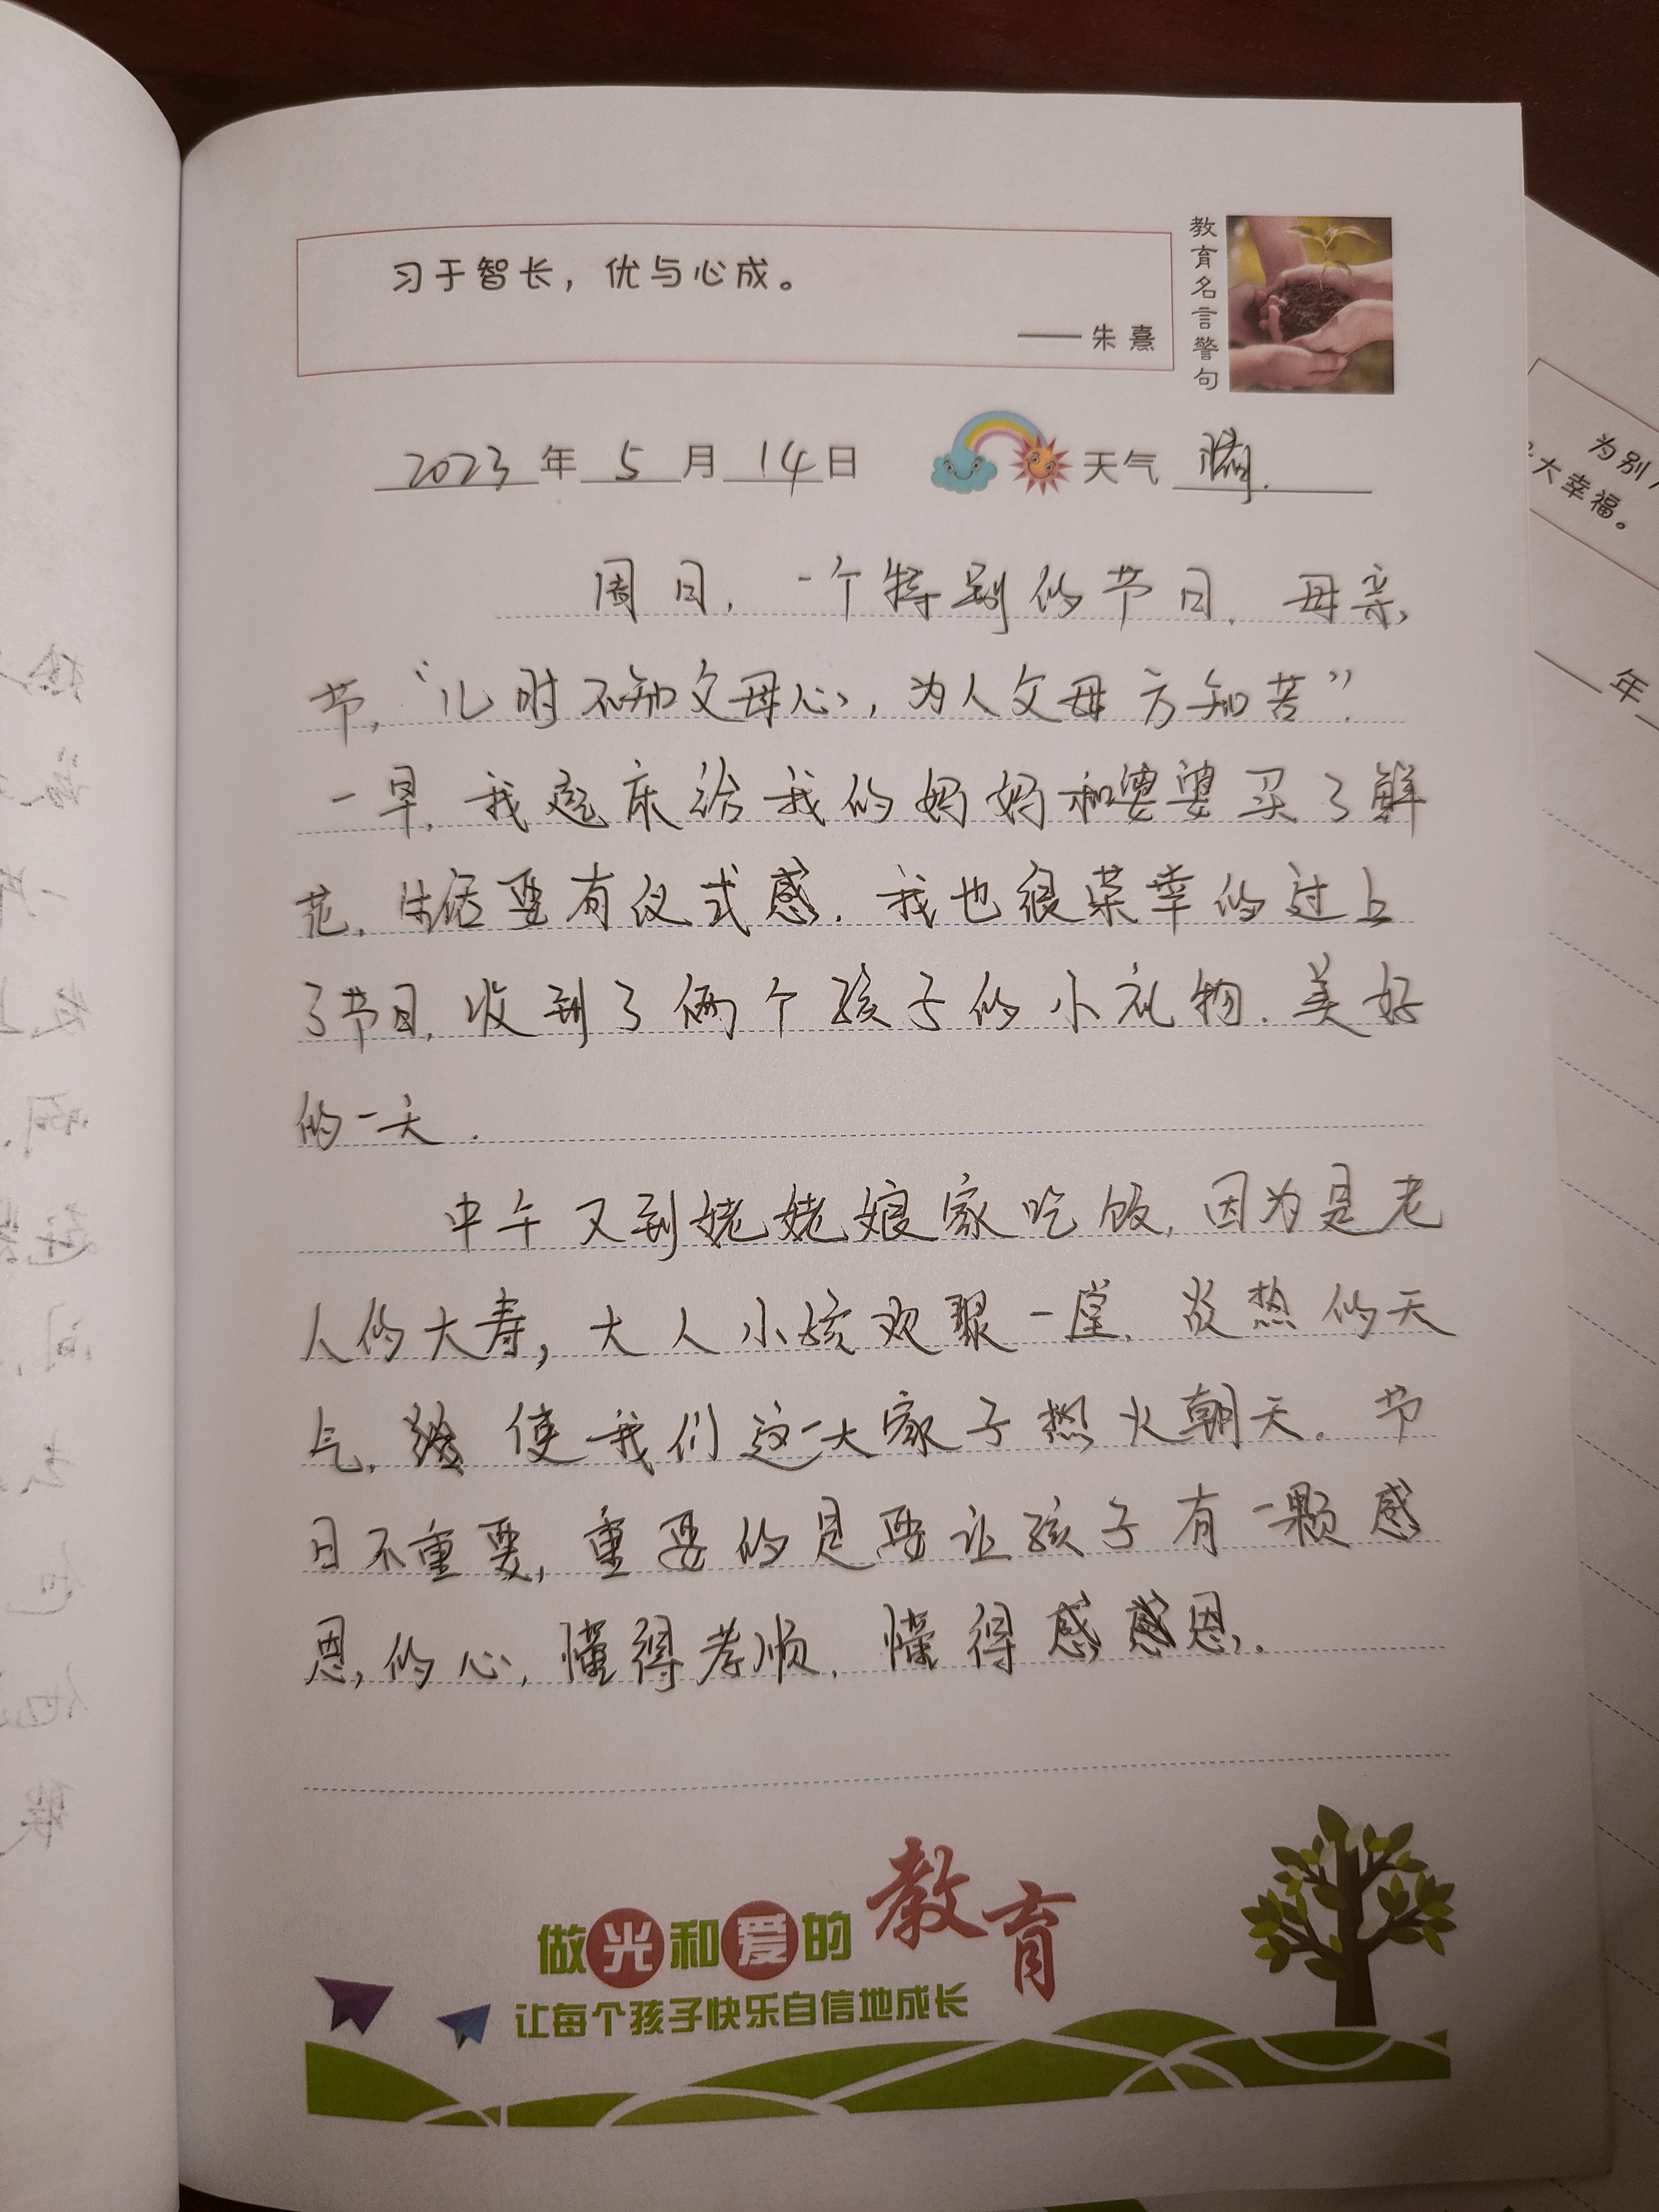 习于智长，优与心成。
——朱熹
教育名言警句
2023年5月14日 天气 晴.
周日，一个特别的节日，母亲
节，“儿时不知父母心，为人父母方知苦”.
一早，我起床给我的妈妈和婆婆买了鲜
花，生活要有仪式感.我也很荣幸的过上
了节日，收到了俩个孩子的小礼物.美好
的一天.
中午又到姥姥娘家吃饭，因为是老
人的大寿，大人小孩欢聚一堂.炎热的天
气，使我们这一大家子热火朝天。节
日不重要，重要的是要让孩子有一颗感
恩的心，懂得孝顺.懂得感恩.
做光和爱的教育
让每个孩子快乐自信地成长
为别
大幸福。
年